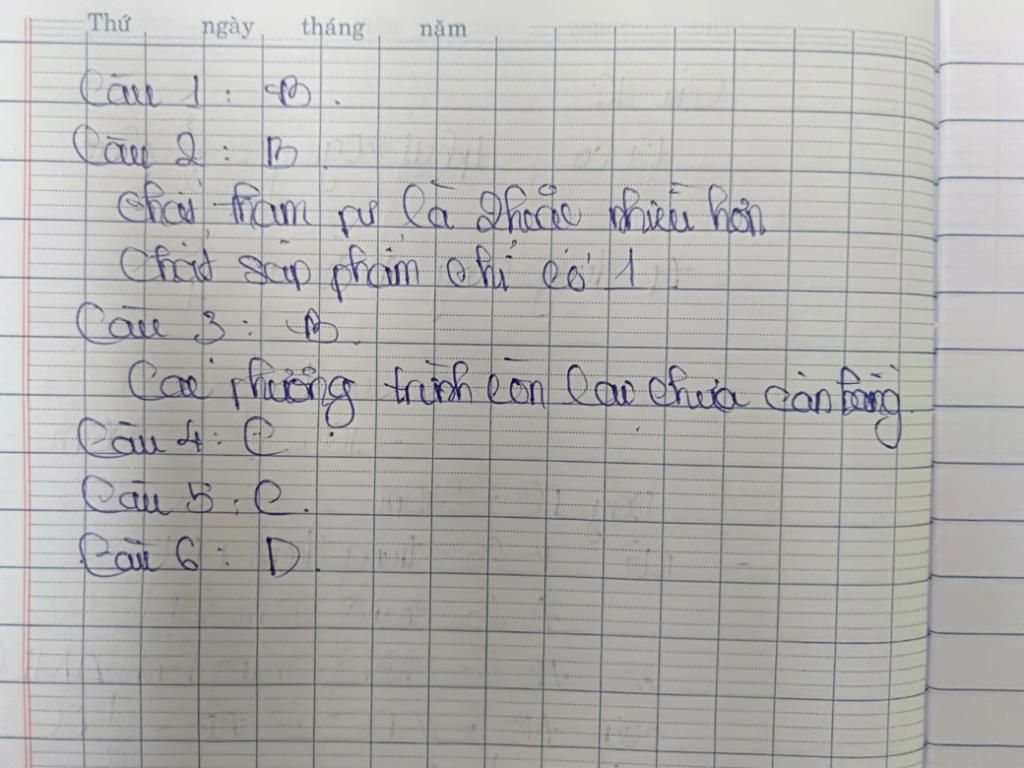 Thứ ngày tháng năm
Câu 1 : B.
Câu 2 : B.
Chất tham dự là 2 hoặc nhiều hơn
Chất sản phẩm chỉ có 1
Câu 3 : B.
Các phương trình còn lại chưa cân bằng.
Câu 4 : C
Câu 5 : C.
Câu 6 : D.